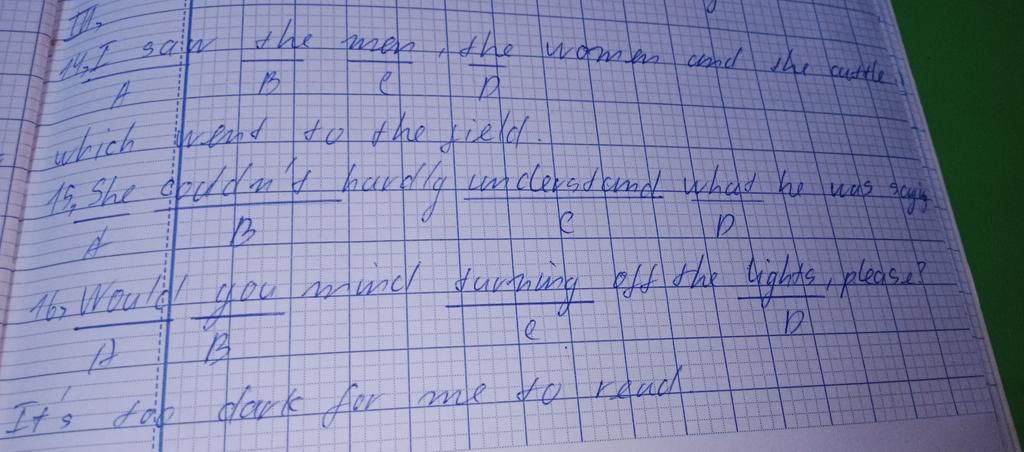 III,
14, I saw the men, the women and the cattle,
A B C D
which went to the field.
15, She couldn't hardly understand what he was saying
A B C D
16, Would you mind turning off the lights, please?
A B C D
It's too dark for me to read